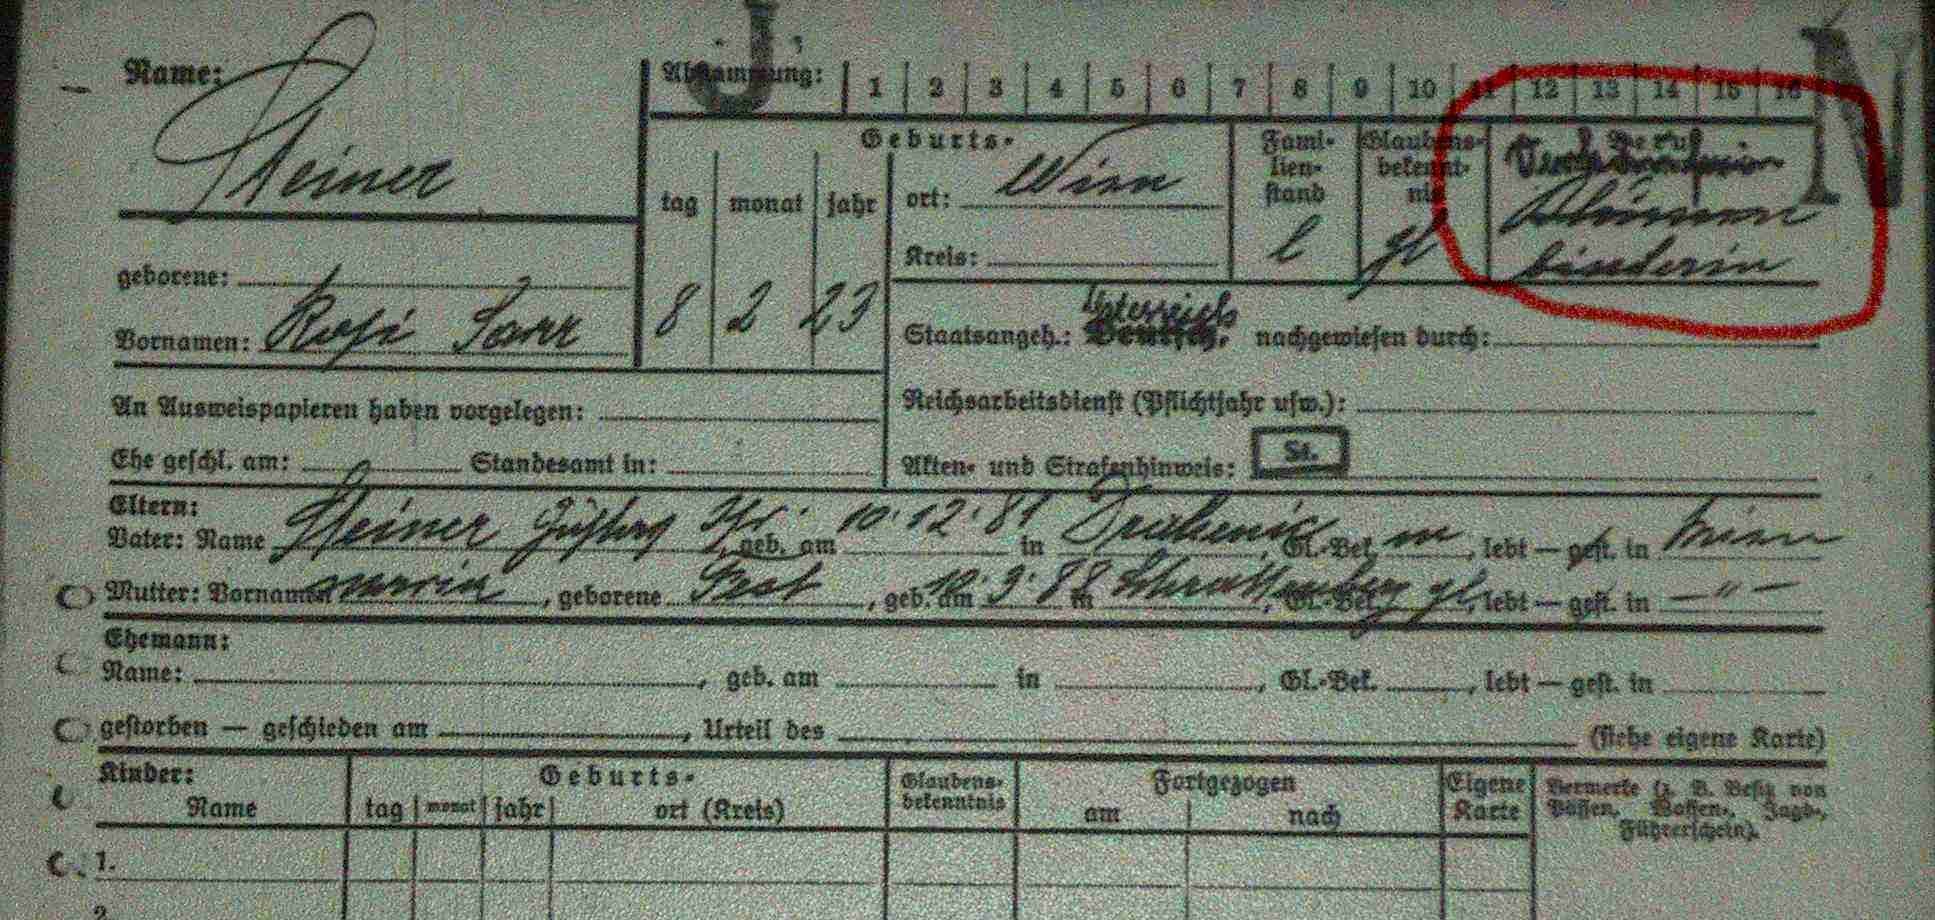 J
N
Name: Steiner
Abstammung: 1 2 3 4 5 6 7 8 9 10 11 12 13 14 15 16
Geburts-
tag monat jahr
8 2 23
ort: Wien
Kreis:
Fami-
lien-
stand
l
Glaubens-
bekennt-
nis
gl
Beruf
Blumen
binderin
geborene:
Vornamen: Rosi Sara
Staatsangeh.: Österreich nachgewiesen durch:
An Ausweispapieren haben vorgelegen:
Reichsarbeitsdienst (Pflichtjahr usw.):
Ehe geschl. am: Standesamt in:
Akten- und Strafenhinweis: St.
Eltern:
Vater: Name Steiner Gustav Isr. geb. am 10.12.81 in , Gl.-Bek. m , lebt — gest. in Wien
Mutter: Vornamen Maria , geborene , geb. am 10.3.88 in Schrattenberg , Gl.-Bek. gl , lebt — gest. in — " —
Ehemann:
Name: , geb. am in , Gl.-Bek. , lebt — gest. in
gestorben — geschieden am , Urteil des (siehe eigene Karte)
Kinder:
Name
Geburts-
tag monat jahr ort (Kreis)
Glaubens-
bekenntnis
Fortgezogen
am nach
Eigene
Karte
Vermerke (z. B. Besitz von
Pässen, Waffen-, Jagd-,
Führerschein).
1.
2.